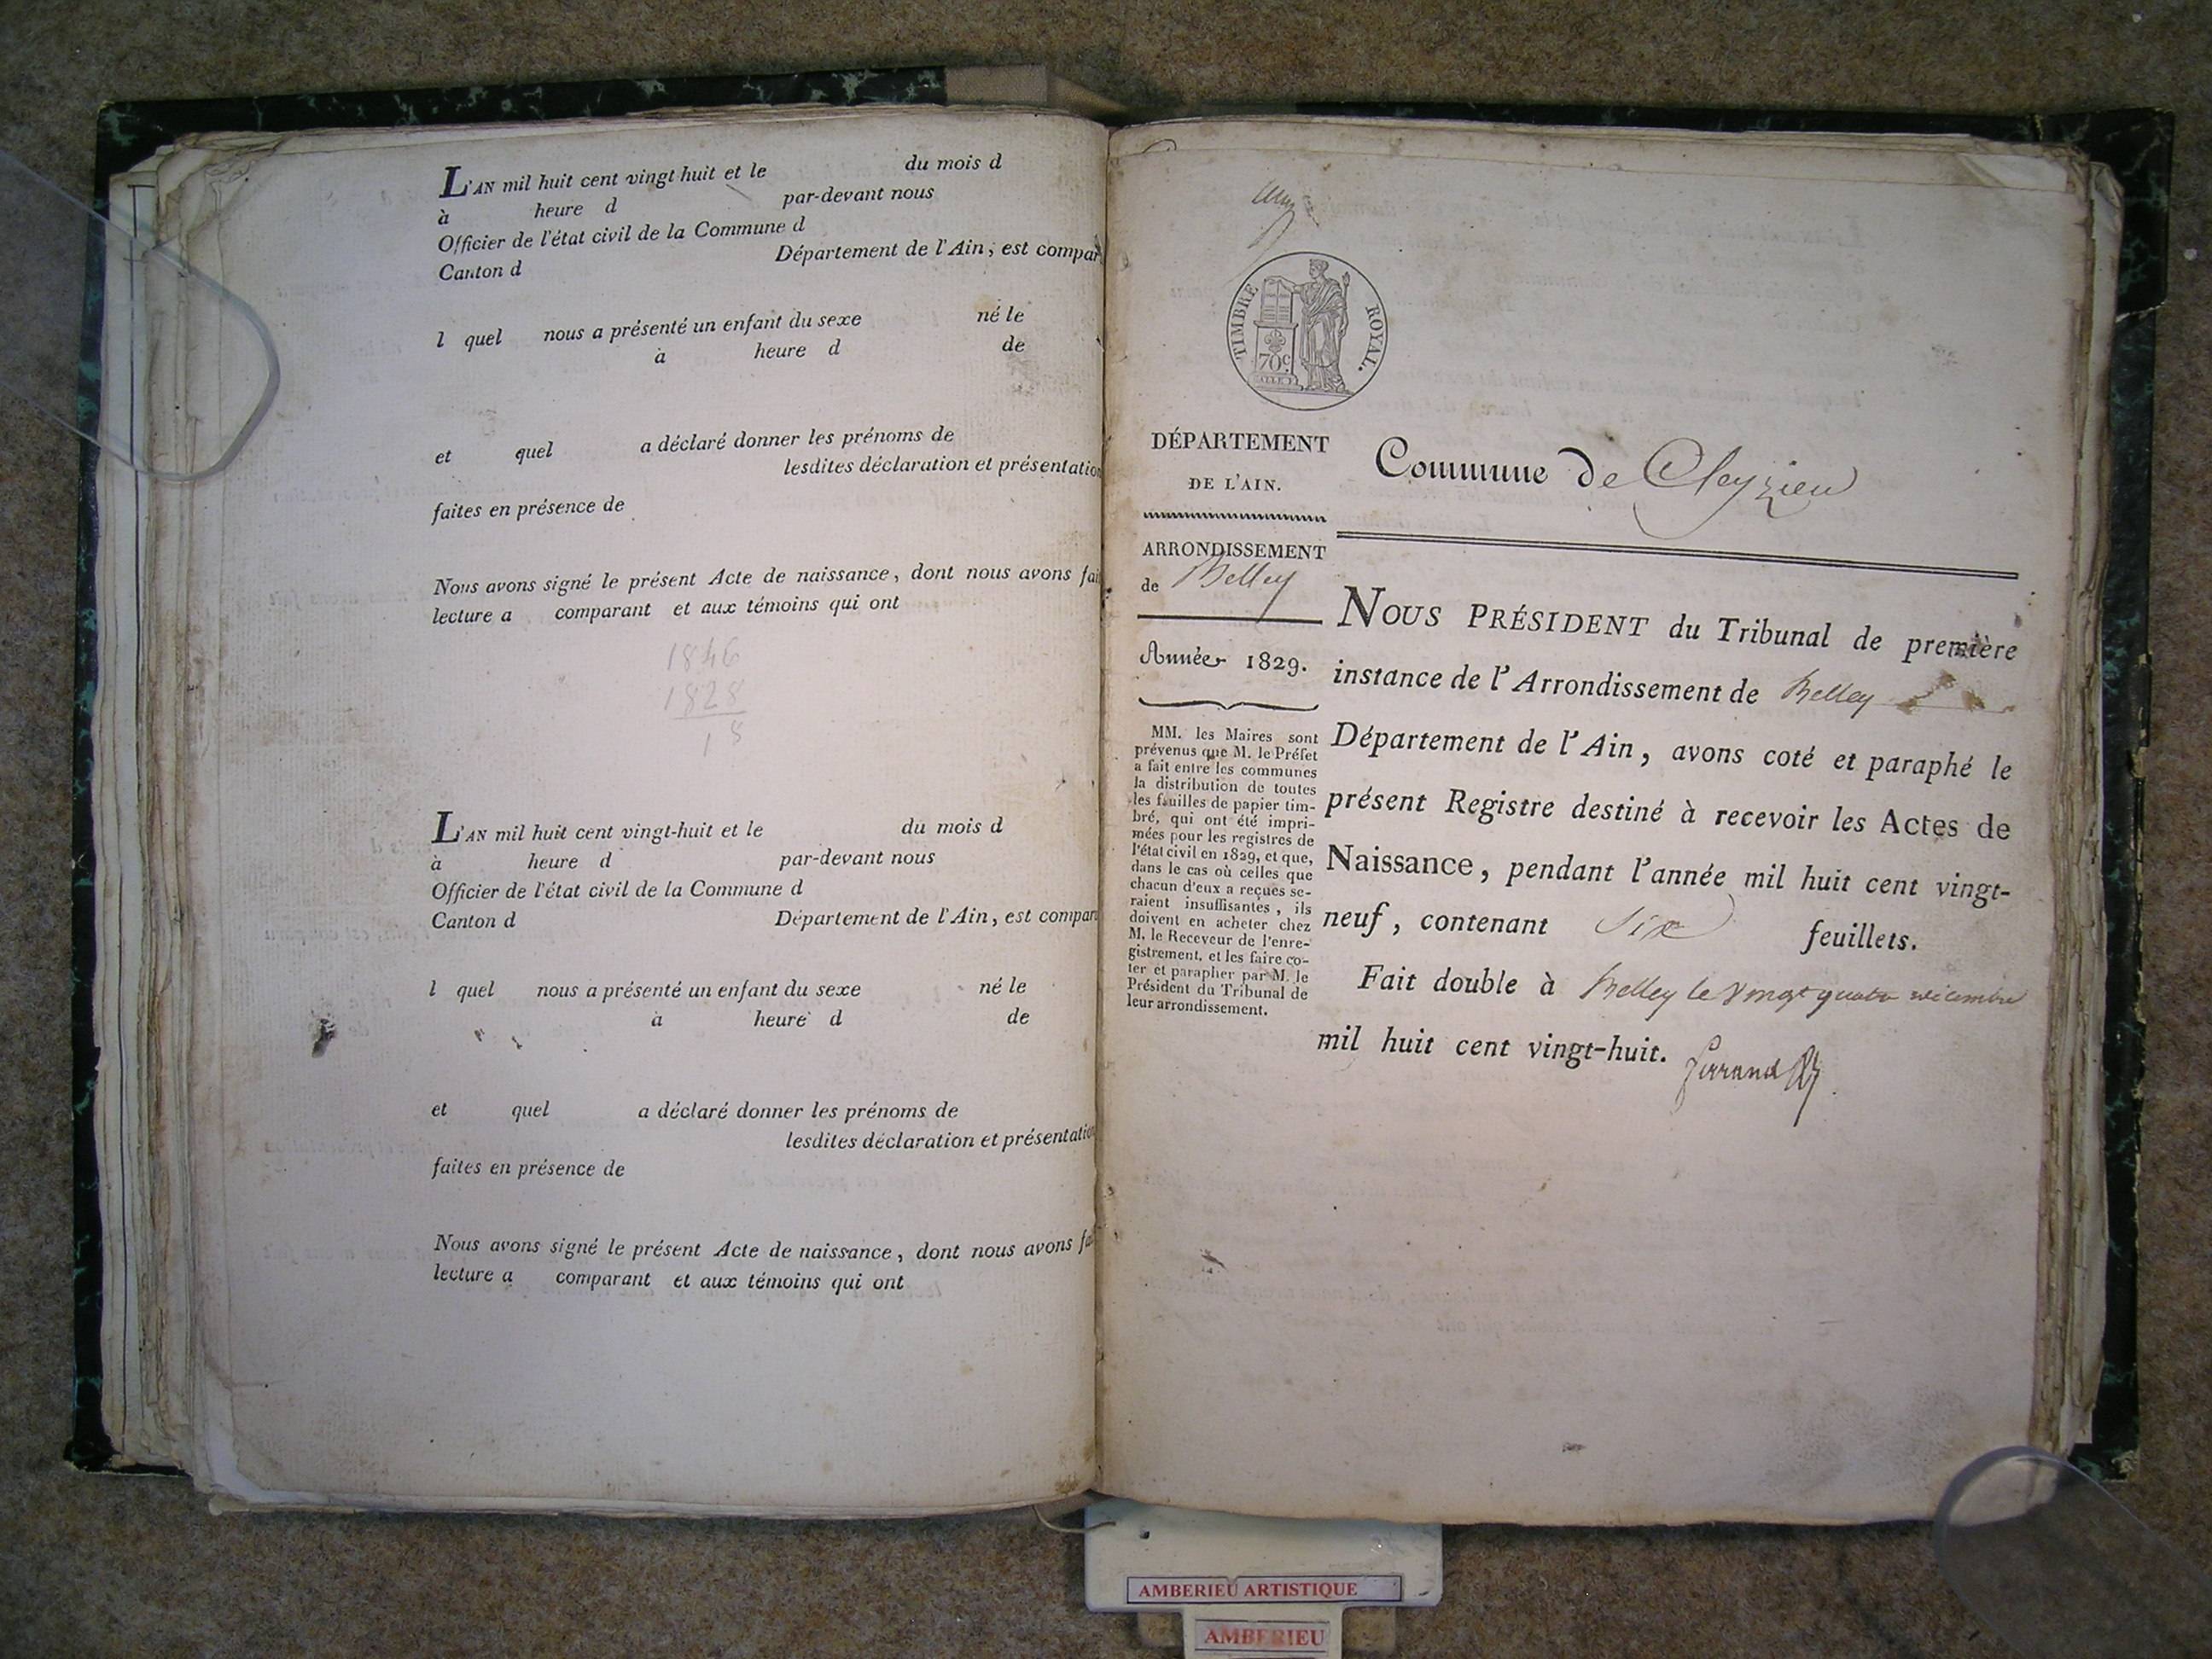 L'AN mil huit cent vingt-huit et le du mois d
à heure d par-devant nous
Officier de l'état civil de la Commune d
Canton d Département de l'Ain, est compar
l quel nous a présenté un enfant du sexe né le
à heure d de
et quel a déclaré donner les prénoms de
lesdites déclaration et présentation
faites en présence de
Nous avons signé le présent Acte de naissance, dont nous avons fai
lecture a comparant et aux témoins qui ont
1846
1828
18
L'AN mil huit cent vingt-huit et le du mois d
à heure d par-devant nous
Officier de l'état civil de la Commune d
Canton d Département de l'Ain, est compar
l quel nous a présenté un enfant du sexe né le
à heure d de
et quel a déclaré donner les prénoms de
lesdites déclaration et présentation
faites en présence de
Nous avons signé le présent Acte de naissance, dont nous avons fai
lecture a comparant et aux témoins qui ont
TIMBRE ROYAL.
70c
DÉPARTEMENT
DE L'AIN.
ARRONDISSEMENT
de Belley
Année 1829.
MM. les Maires sont
prévenus que M. le Préfet
a fait entre les communes
la distribution de toutes
les feuilles de papier tim-
bré, qui ont été impri-
mées pour les registres de
l'état civil en 1829, et que,
dans le cas où celles que
chacun d'eux a reçues se-
raient insuffisantes, ils
doivent en acheter chez
M. le Receveur de l'enre-
gistrement, et les faire co-
ter et parapher par M. le
Président du Tribunal de
leur arrondissement.
Commune de Cleyzieu
NOUS PRÉSIDENT du Tribunal de première
instance de l'Arrondissement de Belley
Département de l'Ain, avons coté et paraphé le
présent Registre destiné à recevoir les Actes de
Naissance, pendant l'année mil huit cent vingt-
neuf, contenant six feuillets.
Fait double à Belley le vingt quatre décembre
mil huit cent vingt-huit.
AMBERIEU ARTISTIQUE
AMBERIEU